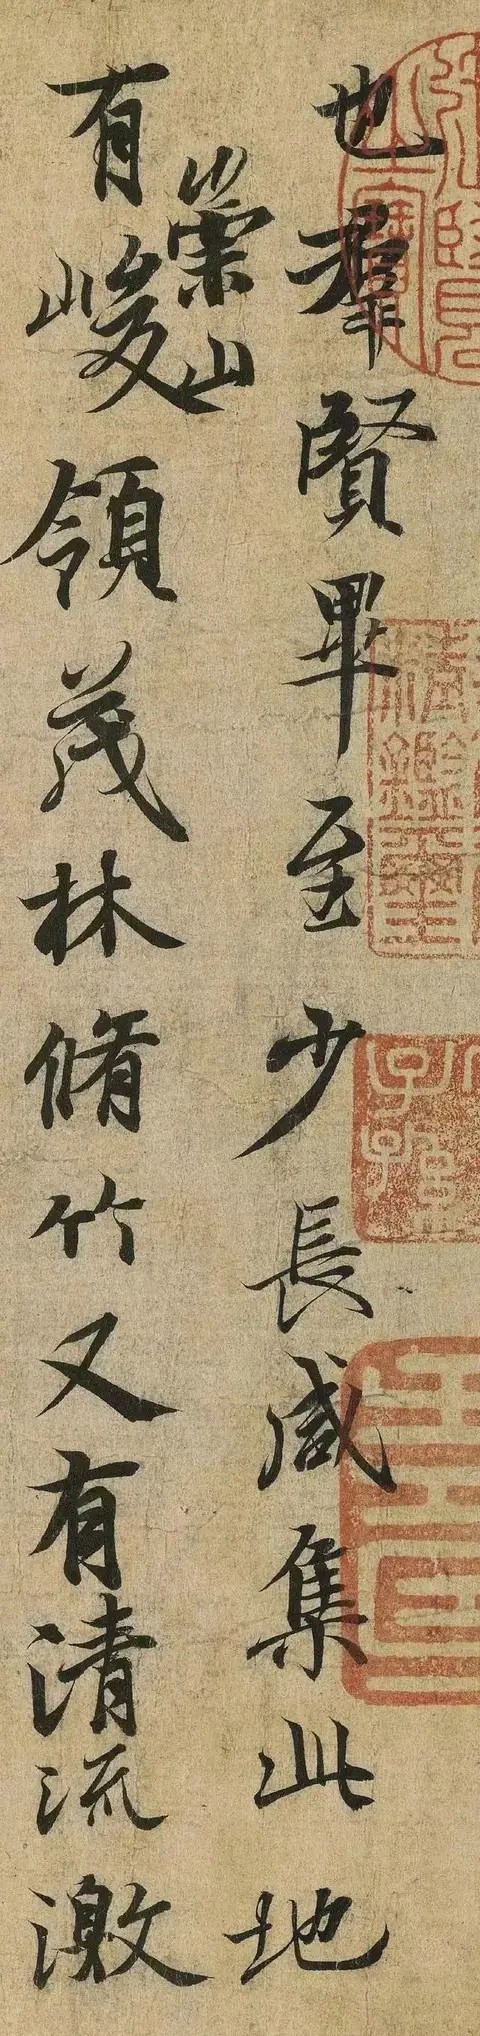 也羣賢畢至少長咸集此地
崇山
有峻領茂林脩竹又有清流激